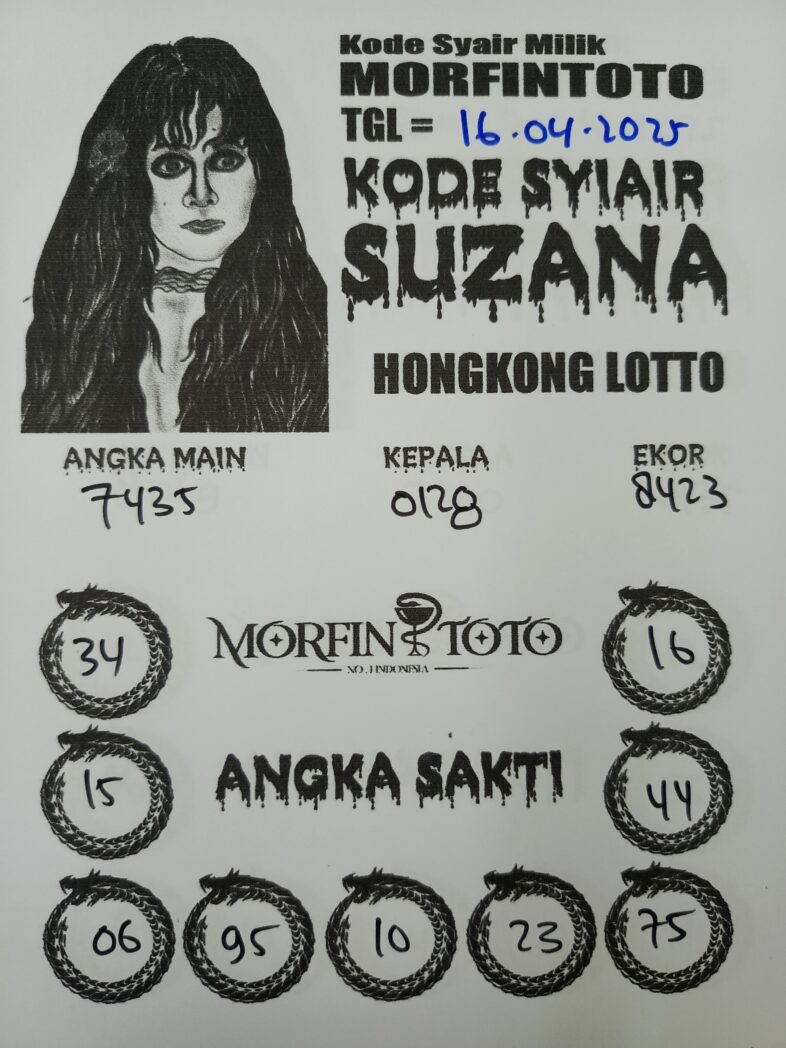 Kode Syair Milik
MORFINTOTO
TGL = 16.04.2025
KODE SYIAIR
SUZANA
HONGKONG LOTTO
ANGKA MAIN KEPALA EKOR
7435 0128 8423
MORFIN TOTO
NO.1 INDONESIA
34 16
ANGKA SAKTI
15 44
06 95 10 23 75